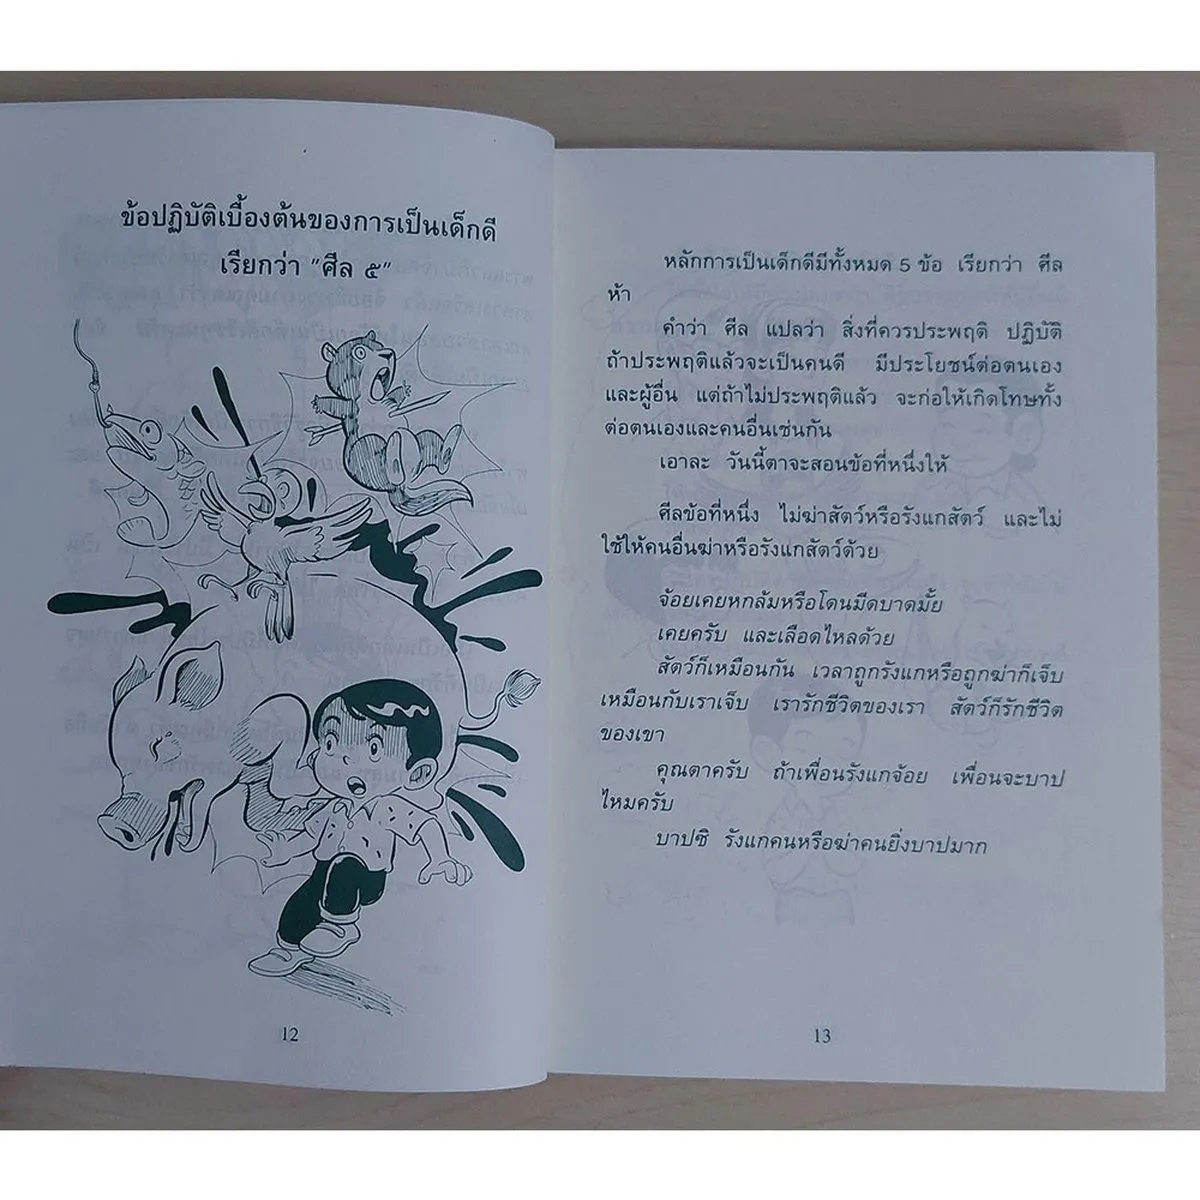 ข้อปฏิบัติเบื้องต้นของการเป็นเด็กดี
เรียกว่า "ศีล ๕"
12
หลักการเป็นเด็กดีมีทั้งหมด 5 ข้อ เรียกว่า ศีล
ห้า
คำว่า ศีล แปลว่า สิ่งที่ควรประพฤติ ปฏิบัติ
ถ้าประพฤติแล้วจะเป็นคนดี มีประโยชน์ต่อตนเอง
และผู้อื่น แต่ถ้าไม่ประพฤติแล้ว จะก่อให้เกิดโทษทั้ง
ต่อตนเองและคนอื่นเช่นกัน
เอาละ วันนี้ตาจะสอนข้อที่หนึ่งให้
ศีลข้อที่หนึ่ง ไม่ฆ่าสัตว์หรือรังแกสัตว์ และไม่
ใช้ให้คนอื่นฆ่าหรือรังแกสัตว์ด้วย
จ้อยเคยหกล้มหรือโดนมีดบาดมั้ย
เคยครับ และเลือดไหลด้วย
สัตว์ก็เหมือนกัน เวลาถูกรังแกหรือถูกฆ่าก็เจ็บ
เหมือนกับเราเจ็บ เรารักชีวิตของเรา สัตว์ก็รักชีวิต
ของเขา
คุณตาครับ ถ้าเพื่อนรังแกจ้อย เพื่อนจะบาป
ไหมครับ
บาปซิ รังแกคนหรือฆ่าคนยิ่งบาปมาก
13